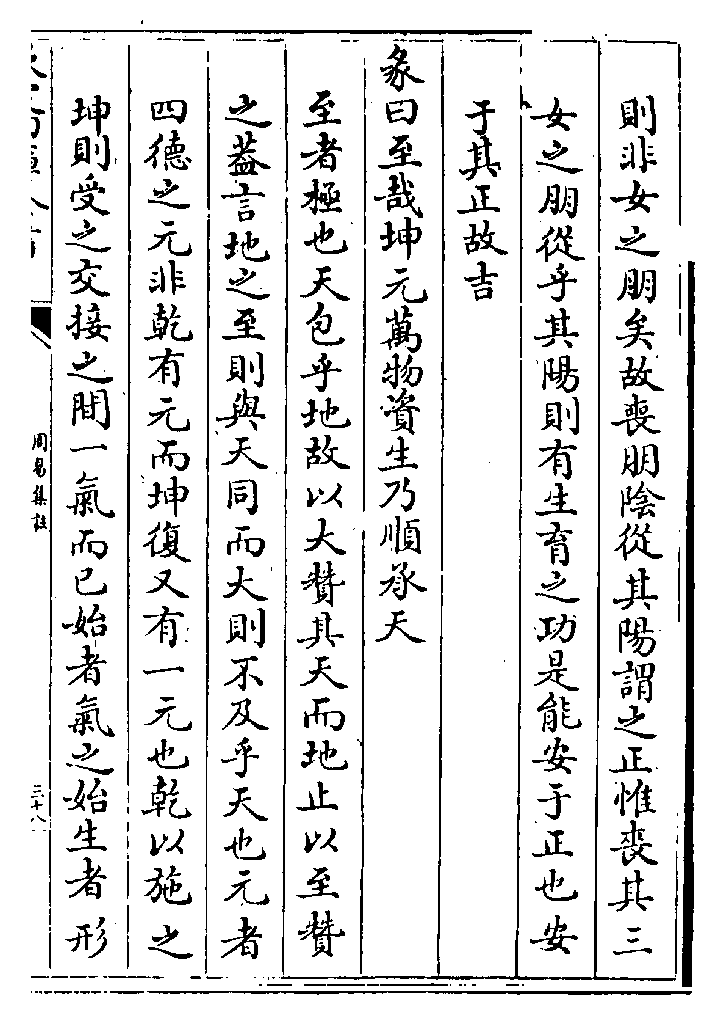 則非女之朋矣故喪朋陰從其陽謂之正惟喪其三
女之朋從乎其陽則有生育之功是能安于正也安
于其正故吉
彖曰至哉坤元萬物資生乃順承天
至者極也天包乎地故以大贊其天而地止以至贊
之葢言地之至則與天同而大則不及乎天也元者
四德之元非乾有元而坤復又有一元也乾以施之
坤則受之交接之間一氣而已始者氣之始生者形
周易集註
三十八